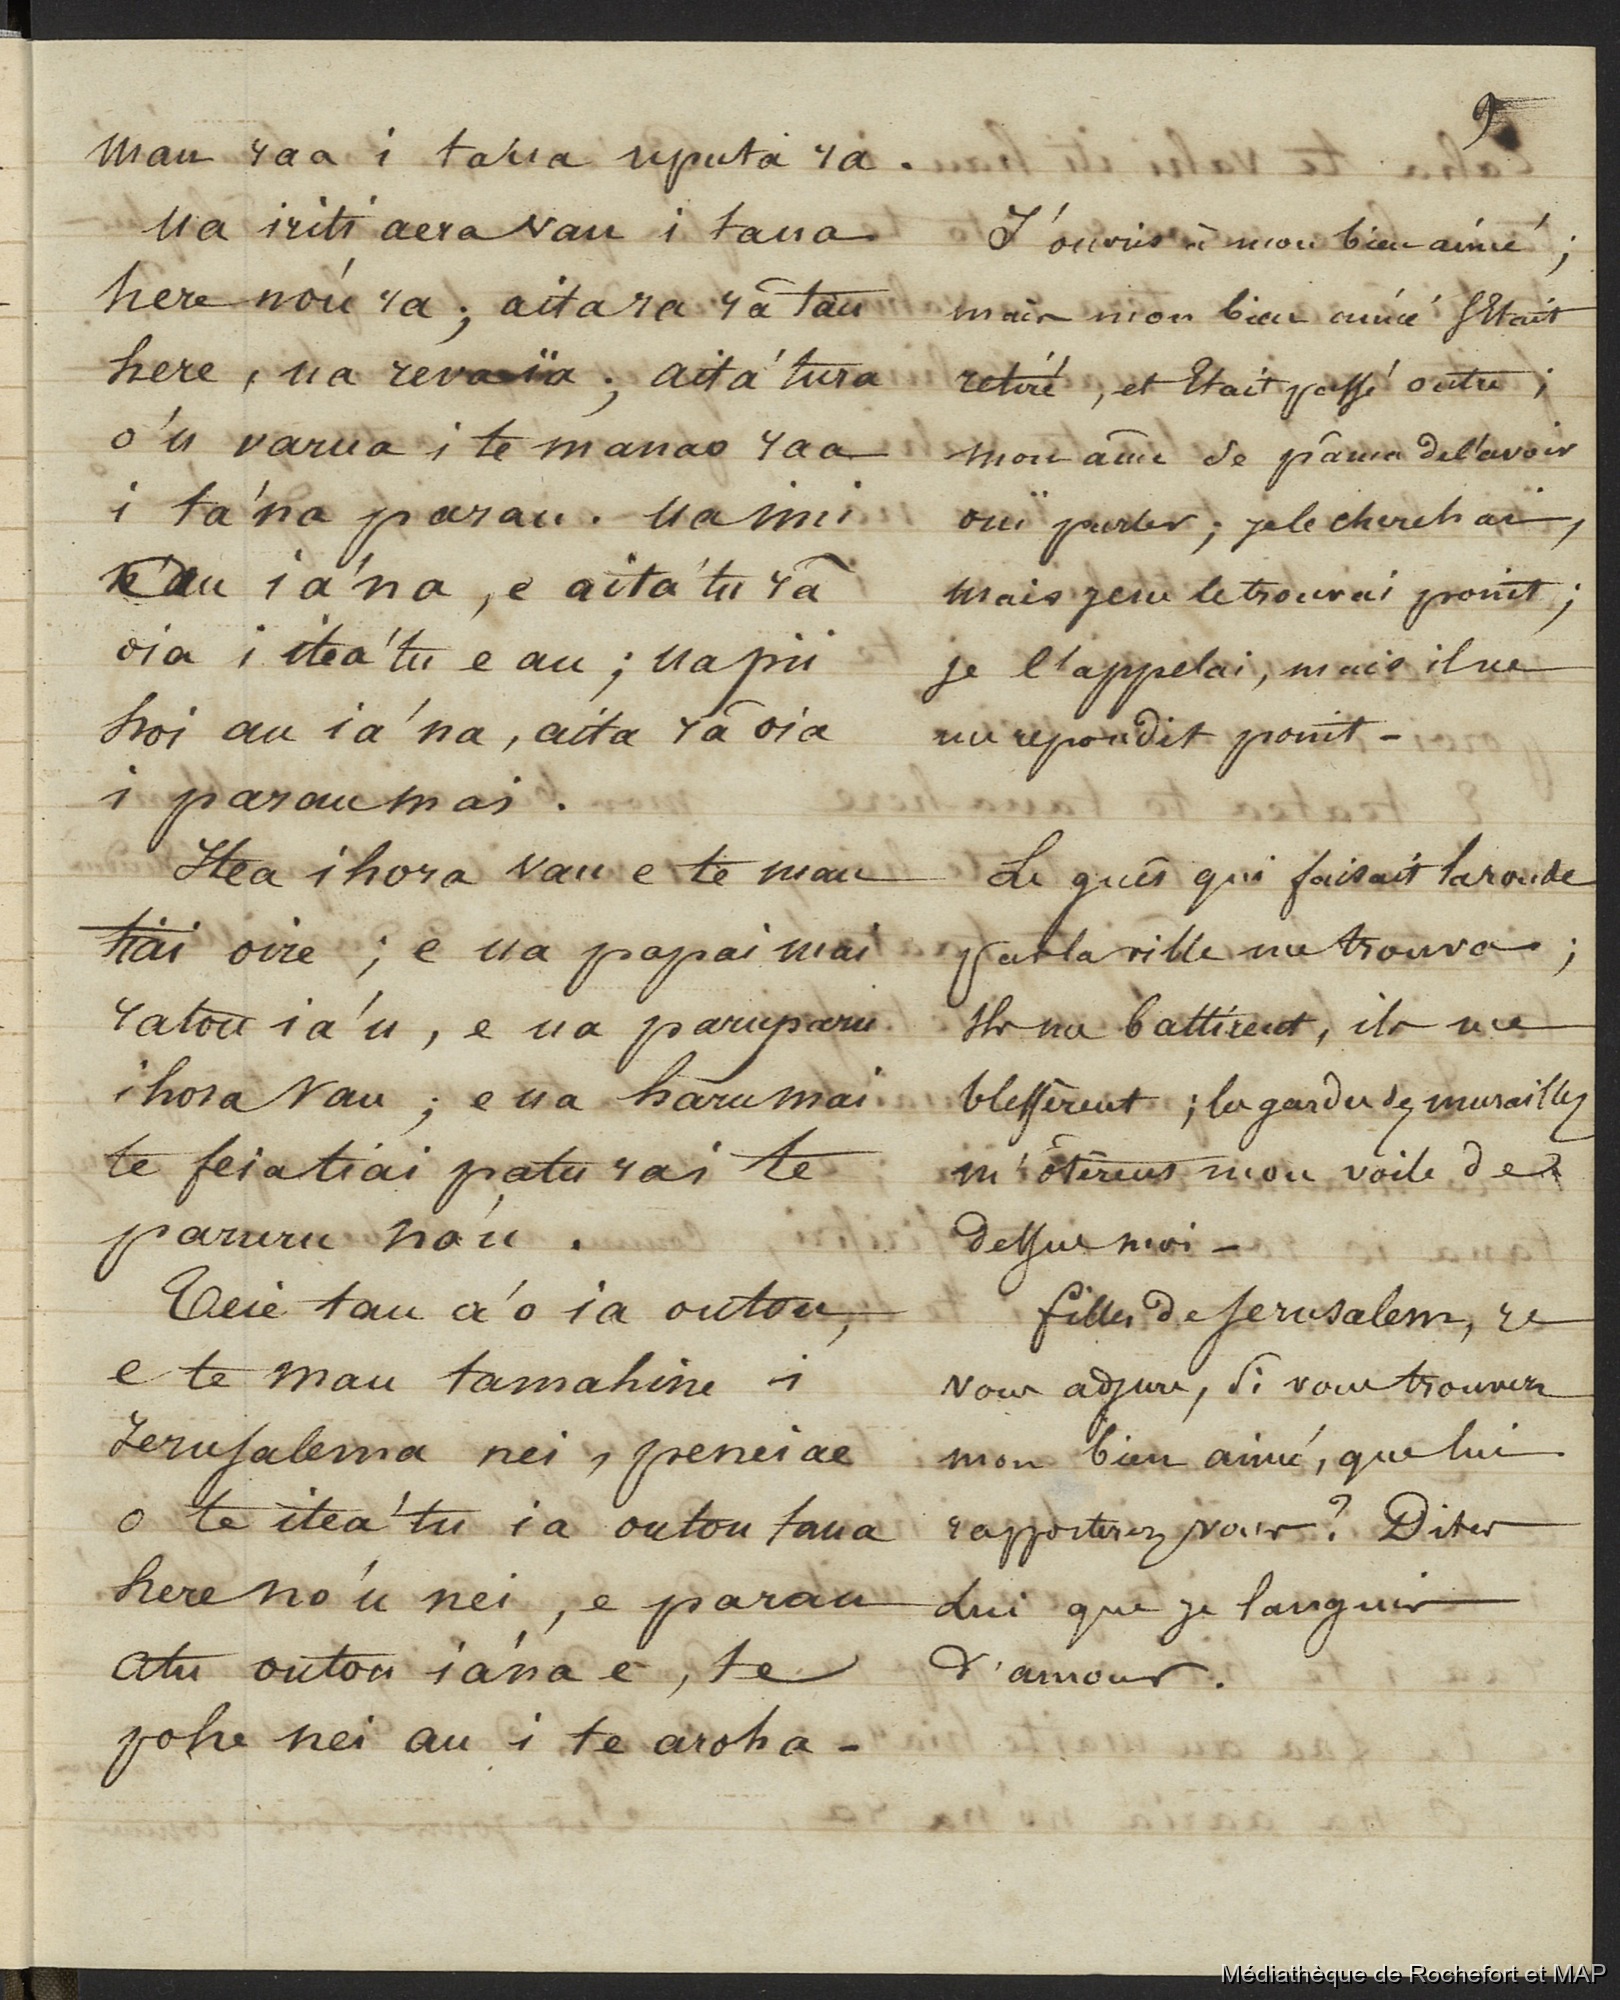 9
mau raa i taua uputa ra.
Ua iriti aera vau i taua
here no'u ra; aitara râ tâu
here, ua reva ïa; aita'tura
o'u varua i te manao raa
i ta'na parau. Ua imi
e au ia'na, e aita'tu râ
oia i itea'tu e au; ua pii
hoi au ia'na, aita râ oia
i parau mai.
Itea ihora vau e te mau
tiai oire; e ua papai mai
ratou ia'u, e ua paruparu
ihora vau; e ua haru mai
te feia tiai patu rai te
paruru no'u.
Teie tau a'o ia outou,
e te mau tamahine i
Ierusalema nei, peneiae
o te itea'tu ia outou taua
here no'u nei, e parau
atu outou ia'na e, te
pohe nei au i te aroha -
J'ouvris à mon bien aimé;
mais mon bien aimé s'était
retiré, et était passé outre;
mon âme se pâma de l'avoir
ouï parler; je le cherchai,
mais je ne le trouvai point;
je l'appelai, mais il ne
me repondit point -
Le guet qui faisait la ronde
par la ville me trouva;
ils me battirent, ils me
blessèrent; les gardes des murailles
m'ôtèrent mon voile de
dessus moi -
filles de Jerusalem, je
vous adjure, si vous trouvez
mon bien aimé, que lui
rapporterez vous? Dites
lui que je languis
d'amour.
Médiathèque de Rochefort et MAP